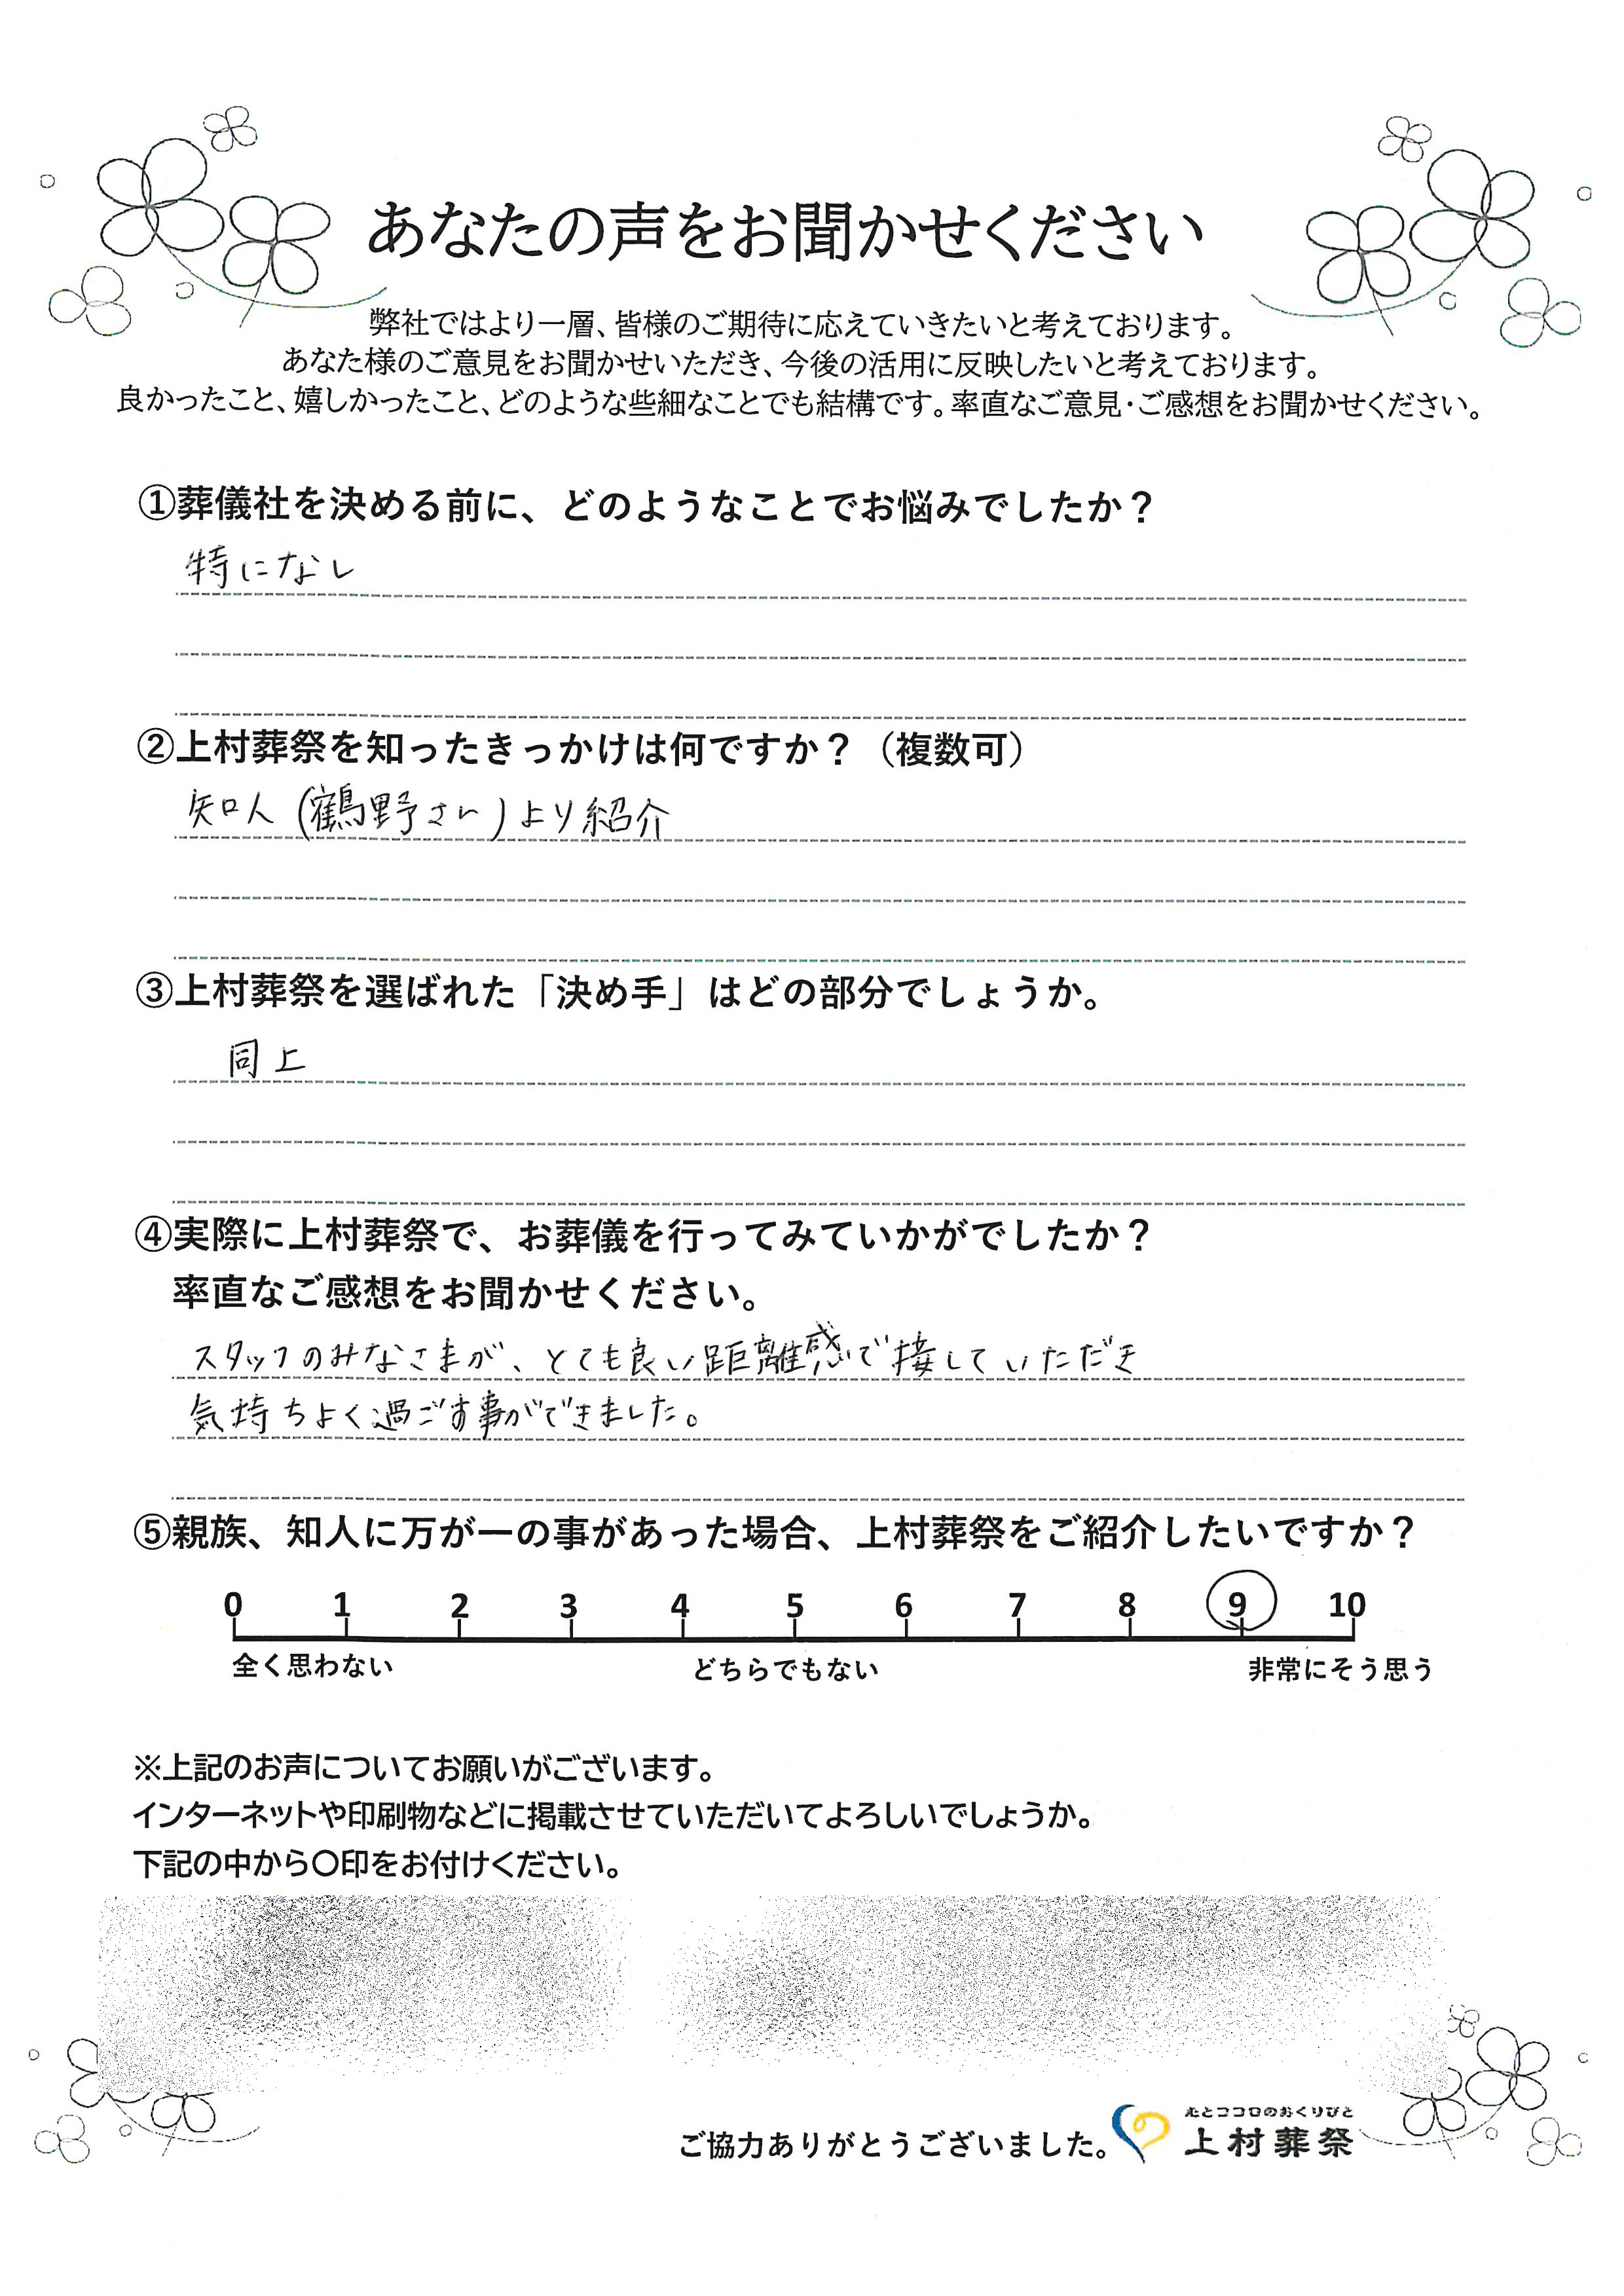 あなたの声をお聞かせください
弊社ではより一層、皆様のご期待に応えていきたいと考えております。
あなた様のご意見をお聞かせいただき、今後の活用に反映したいと考えております。
良かったこと、嬉しかったこと、どのような些細なことでも結構です。率直なご意見・ご感想をお聞かせください。
①葬儀社を決める前に、どのようなことでお悩みでしたか？
特になし
②上村葬祭を知ったきっかけは何ですか？（複数可）
知人(鶴野さん)より紹介
③上村葬祭を選ばれた「決め手」はどの部分でしょうか。
同上
④実際に上村葬祭で、お葬儀を行ってみていかがでしたか？
率直なご感想をお聞かせください。
スタッフのみなさまが、とても良い距離感で接していただき
気持ちよく過ごす事ができました。
⑤親族、知人に万が一の事があった場合、上村葬祭をご紹介したいですか？
0 1 2 3 4 5 6 7 8 9 10
全く思わない どちらでもない 非常にそう思う
※上記のお声についてお願いがございます。
インターネットや印刷物などに掲載させていただいてよろしいでしょうか。
下記の中から〇印をお付けください。
心とココロのおくりびと
ご協力ありがとうございました。 上村葬祭